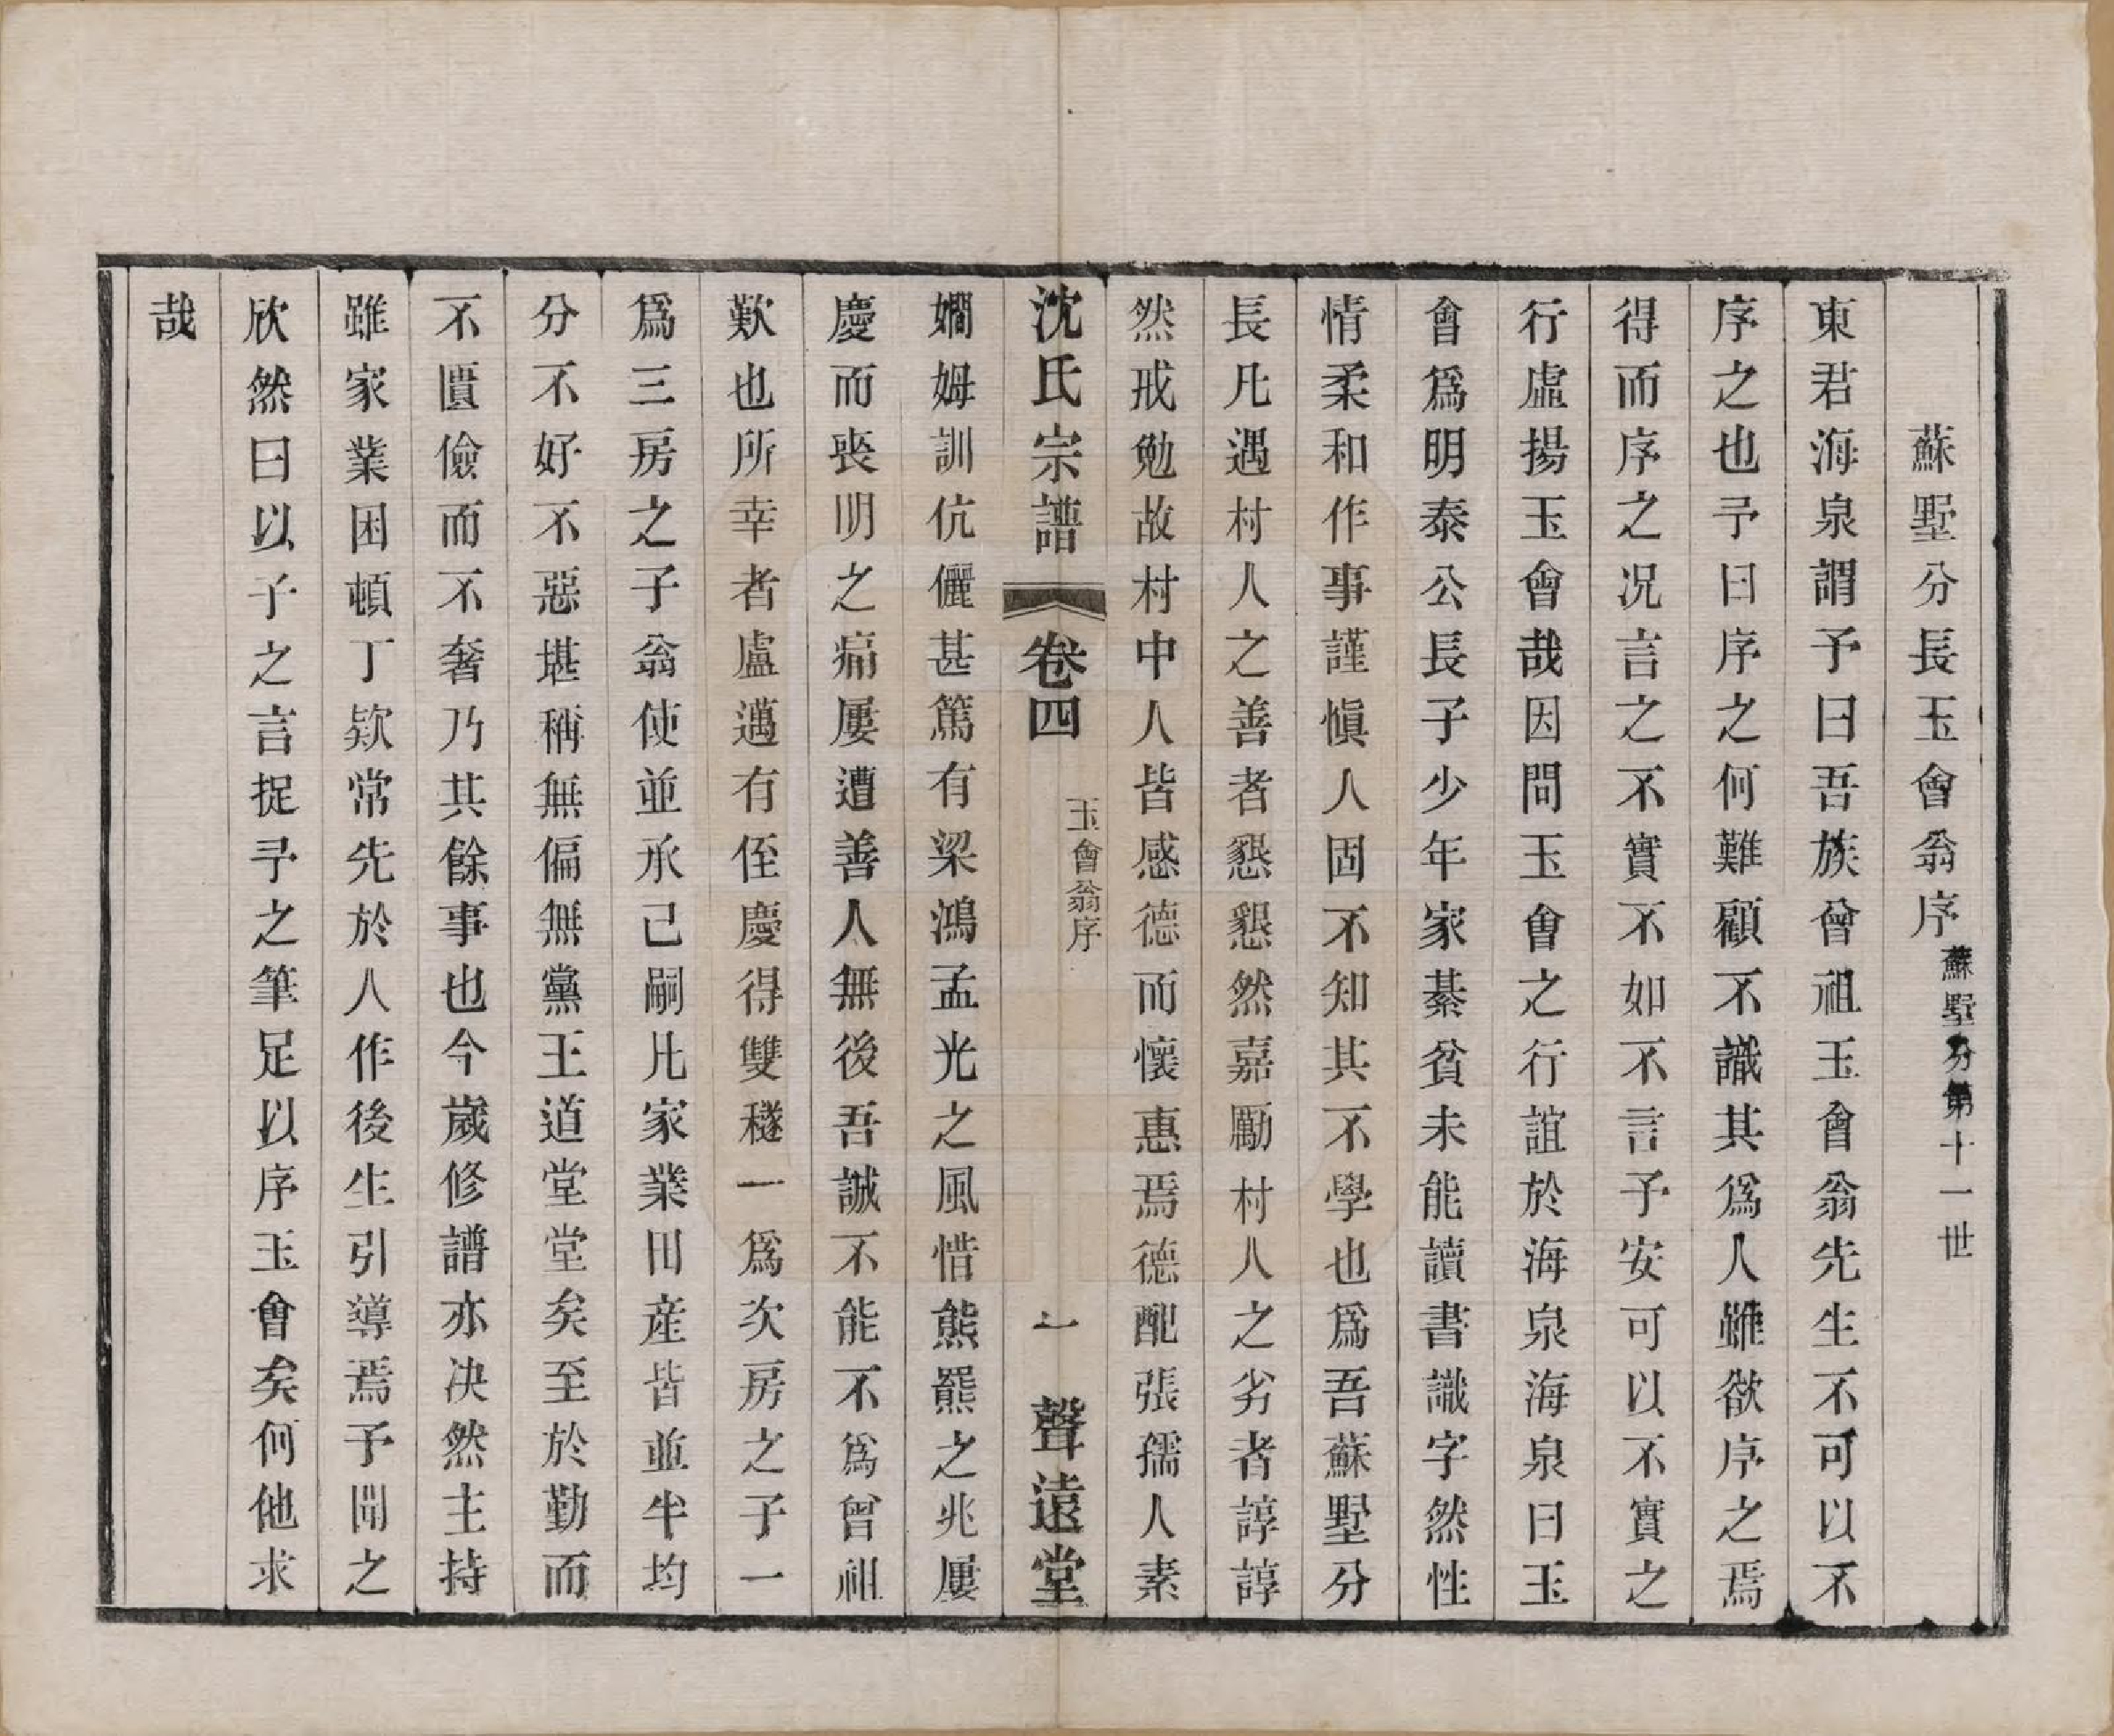 蘇墅分長玉會翁序 蘇墅分第十一世
東君海泉謂予曰吾族曾祖玉會翁先生不可以不
序之也予曰序之何難顧不識其爲人雖欲序之焉
得而序之况言之不實不如不言予安可以不實之
行虛揚玉會哉因問玉會之行誼於海泉海泉曰玉
會爲明泰公長子少年家綦貧未能讀書識字然性
情柔和作事謹愼人固不知其不學也爲吾蘇墅分
長凡遇村人之善者懇懇然嘉勵村人之劣者諄諄
然戒勉故村中人皆感德而懷惠焉德配張孺人素
沈氏宗譜 卷四 玉會翁序 一 聲遠堂
嫺姆訓伉儷甚篤有梁鴻孟光之風惜熊羆之兆屢
慶而喪明之痛屢遭善人無後吾誠不能不爲曾祖
歎也所幸者盧邁有侄慶得雙穟一爲次房之子一
爲三房之子翁使並承己嗣凡家業田產皆並半均
分不好不惡堪稱無偏無黨王道堂堂矣至於勤而
不匱儉而不奢乃其餘事也今歲修譜亦决然主持
雖家業困頓丁欵常先於人作後生引導焉予聞之
欣然曰以子之言捉予之筆足以序玉會矣何他求
哉